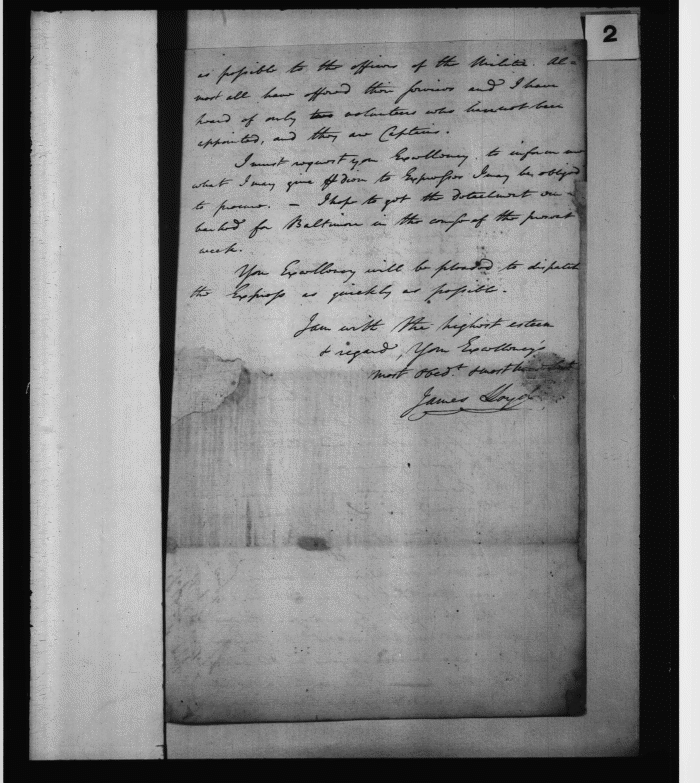 2
as possible to the officers of the Militia. Al=
most all have offered their services and I have
heard of only two volunteers who have not been
appointed, and they are Captains.
I must request your Excellency to inform me
what I may give pr diem to Expresses I may be obliged
to procure. — I hope to get the detachment em=
barked for Baltimore in the course of the present
week.
Your Excellency will be pleased to dispatch
the Express as quickly as possible.
I am with the highest esteem
& regard, Your Excellency's
most Obedt & most
James Lloyd